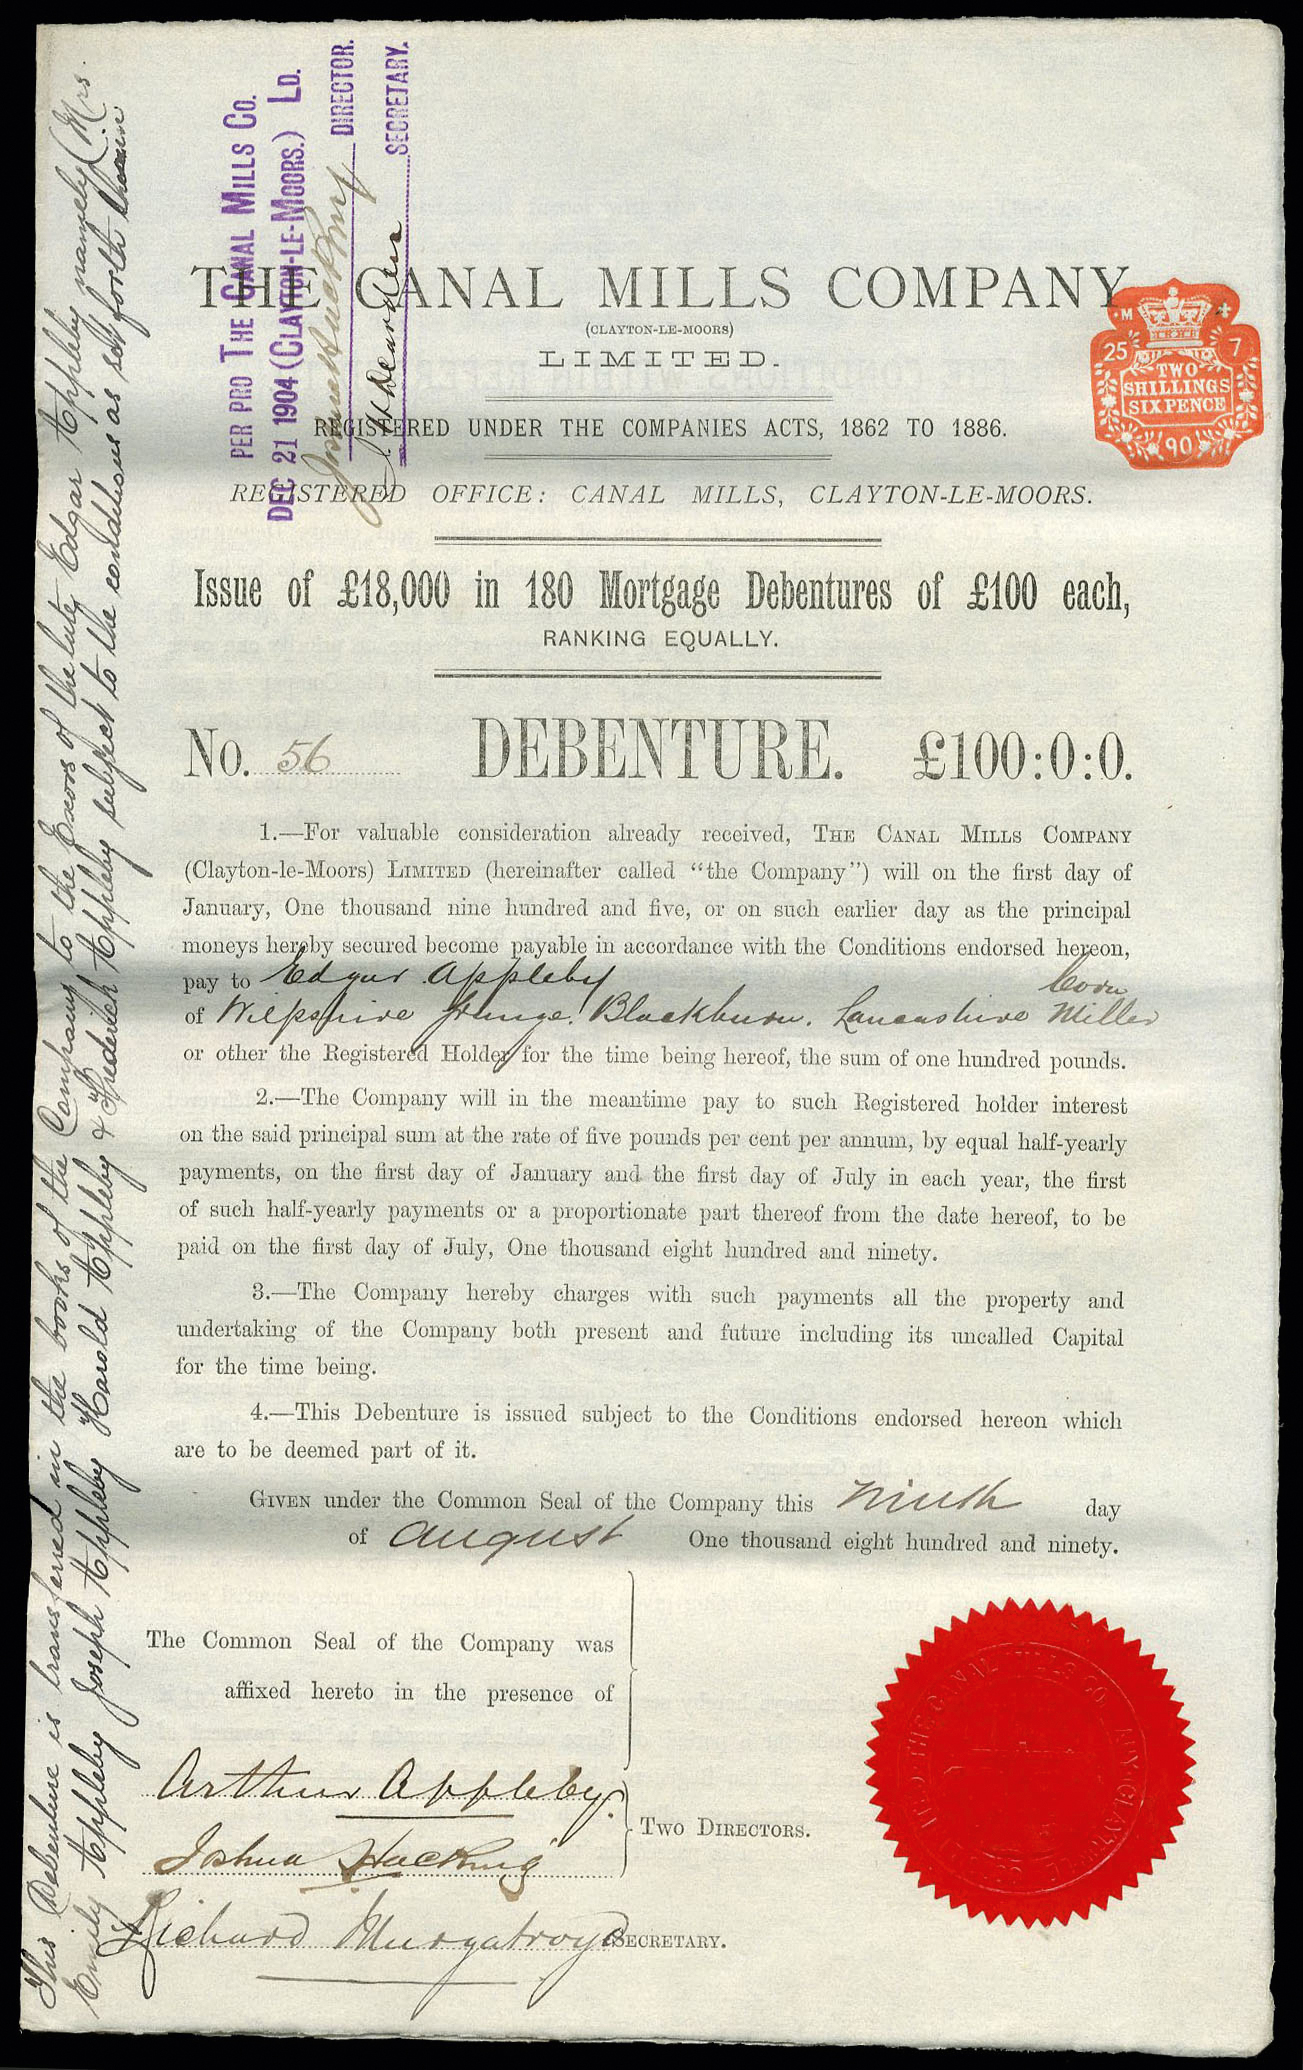 THE CANAL MILLS COMPANY
(CLAYTON-LE-MOORS)
LIMITED.
REGISTERED UNDER THE COMPANIES ACTS, 1862 TO 1886.
REGISTERED OFFICE: CANAL MILLS, CLAYTON-LE-MOORS.
PER PRO THE CANAL MILLS CO.
DEC 21 1904 (CLAYTON-LE-MOORS.) LD.
Joshua Hacking DIRECTOR.
SECRETARY.
M
25 7
TWO
SHILLINGS
SIXPENCE
90
Issue of £18,000 in 180 Mortgage Debentures of £100 each,
RANKING EQUALLY.
No. 56 DEBENTURE. £100:0:0.
1.—For valuable consideration already received, THE CANAL MILLS COMPANY
(Clayton-le-Moors) LIMITED (hereinafter called "the Company") will on the first day of
January, One thousand nine hundred and five, or on such earlier day as the principal
moneys hereby secured become payable in accordance with the Conditions endorsed hereon,
pay to Edgar Appleby Corn
of Wilpshire Grange. Blackburn. Lancashire Miller
or other the Registered Holder for the time being hereof, the sum of one hundred pounds.
2.—The Company will in the meantime pay to such Registered holder interest
on the said principal sum at the rate of five pounds per cent per annum, by equal half-yearly
payments, on the first day of January and the first day of July in each year, the first
of such half-yearly payments or a proportionate part thereof from the date hereof, to be
paid on the first day of July, One thousand eight hundred and ninety.
3.—The Company hereby charges with such payments all the property and
undertaking of the Company both present and future including its uncalled Capital
for the time being.
4.—This Debenture is issued subject to the Conditions endorsed hereon which
are to be deemed part of it.
GIVEN under the Common Seal of the Company this Ninth day
of August One thousand eight hundred and ninety.
The Common Seal of the Company was
affixed hereto in the presence of
Arthur Appleby.
Joshua Hacking
TWO DIRECTORS.
Richard Murgatroyd SECRETARY.
THE CANAL MILLS CO.
This Debenture is transferred in the books of the Company to the Exors of the late Edgar Appleby namely (Mrs.
Emily Appleby Joseph Appleby Harold Appleby & Frederick Appleby subject to the conditions as set forth therein